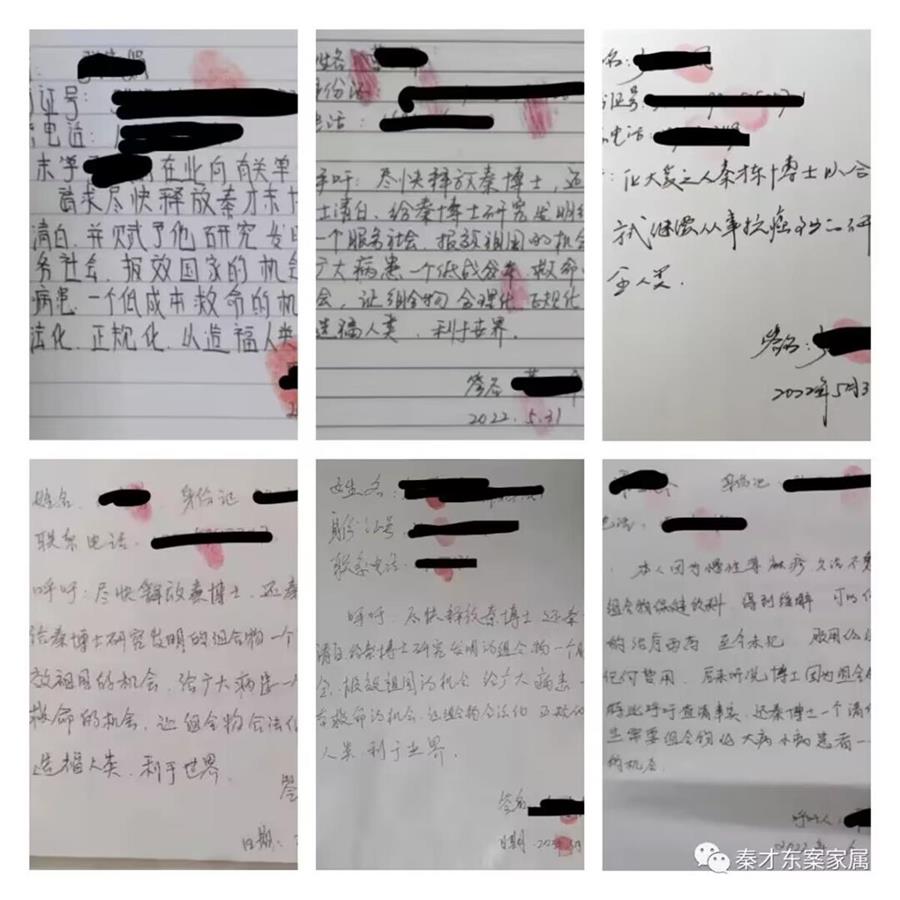 证号:
电话:
在业向有关单
请求尽快释放秦才东博
清白,并赋予他研究发明
务社会、报效国家的机会
病患一个低成本救命的机
法化、正规化,从造福人类
姓名
身份证
电话:
呼吁:尽快释放秦博士,还
士清白,给秦博士研究发明
一个服务社会、报效祖国的机会
广大病患一个低成本救命
会,让组合物合理化、正规化
造福人类、利于世界.
签名
2022.5.31
名:
证号
电话:
让大爱之人秦才东博士以合
式继续从事抗癌
全人类.
签名:
2022年5月3
姓名 身份证
联系电话:
呼吁:尽快释放秦博士,还秦
给秦博士研究发明的组合物一个
效祖国的机会,给广大病患一
救命的机会,让组合物合法化
造福人类,利于世界.
签
日期:
姓名:
身份证号
联系电话:
呼吁:尽快释放秦博士还秦
清白给秦博士研究发明的组合物一个服
会、报效祖国的机会给广大病患一
救命的机会让组合物合法化正规化
人类、利于世界.
签名
日期:
身份证:
电话:
本人因为慢性荨麻疹久治不愈
组合物保健饮料,得到缓解
的治疗 至今未犯 服用
任何费用.
呼吁查清事实,还秦博士一个清白
需要组合物给大病小病患者一
的机会.
呼吁人
2022年
秦才东案家属